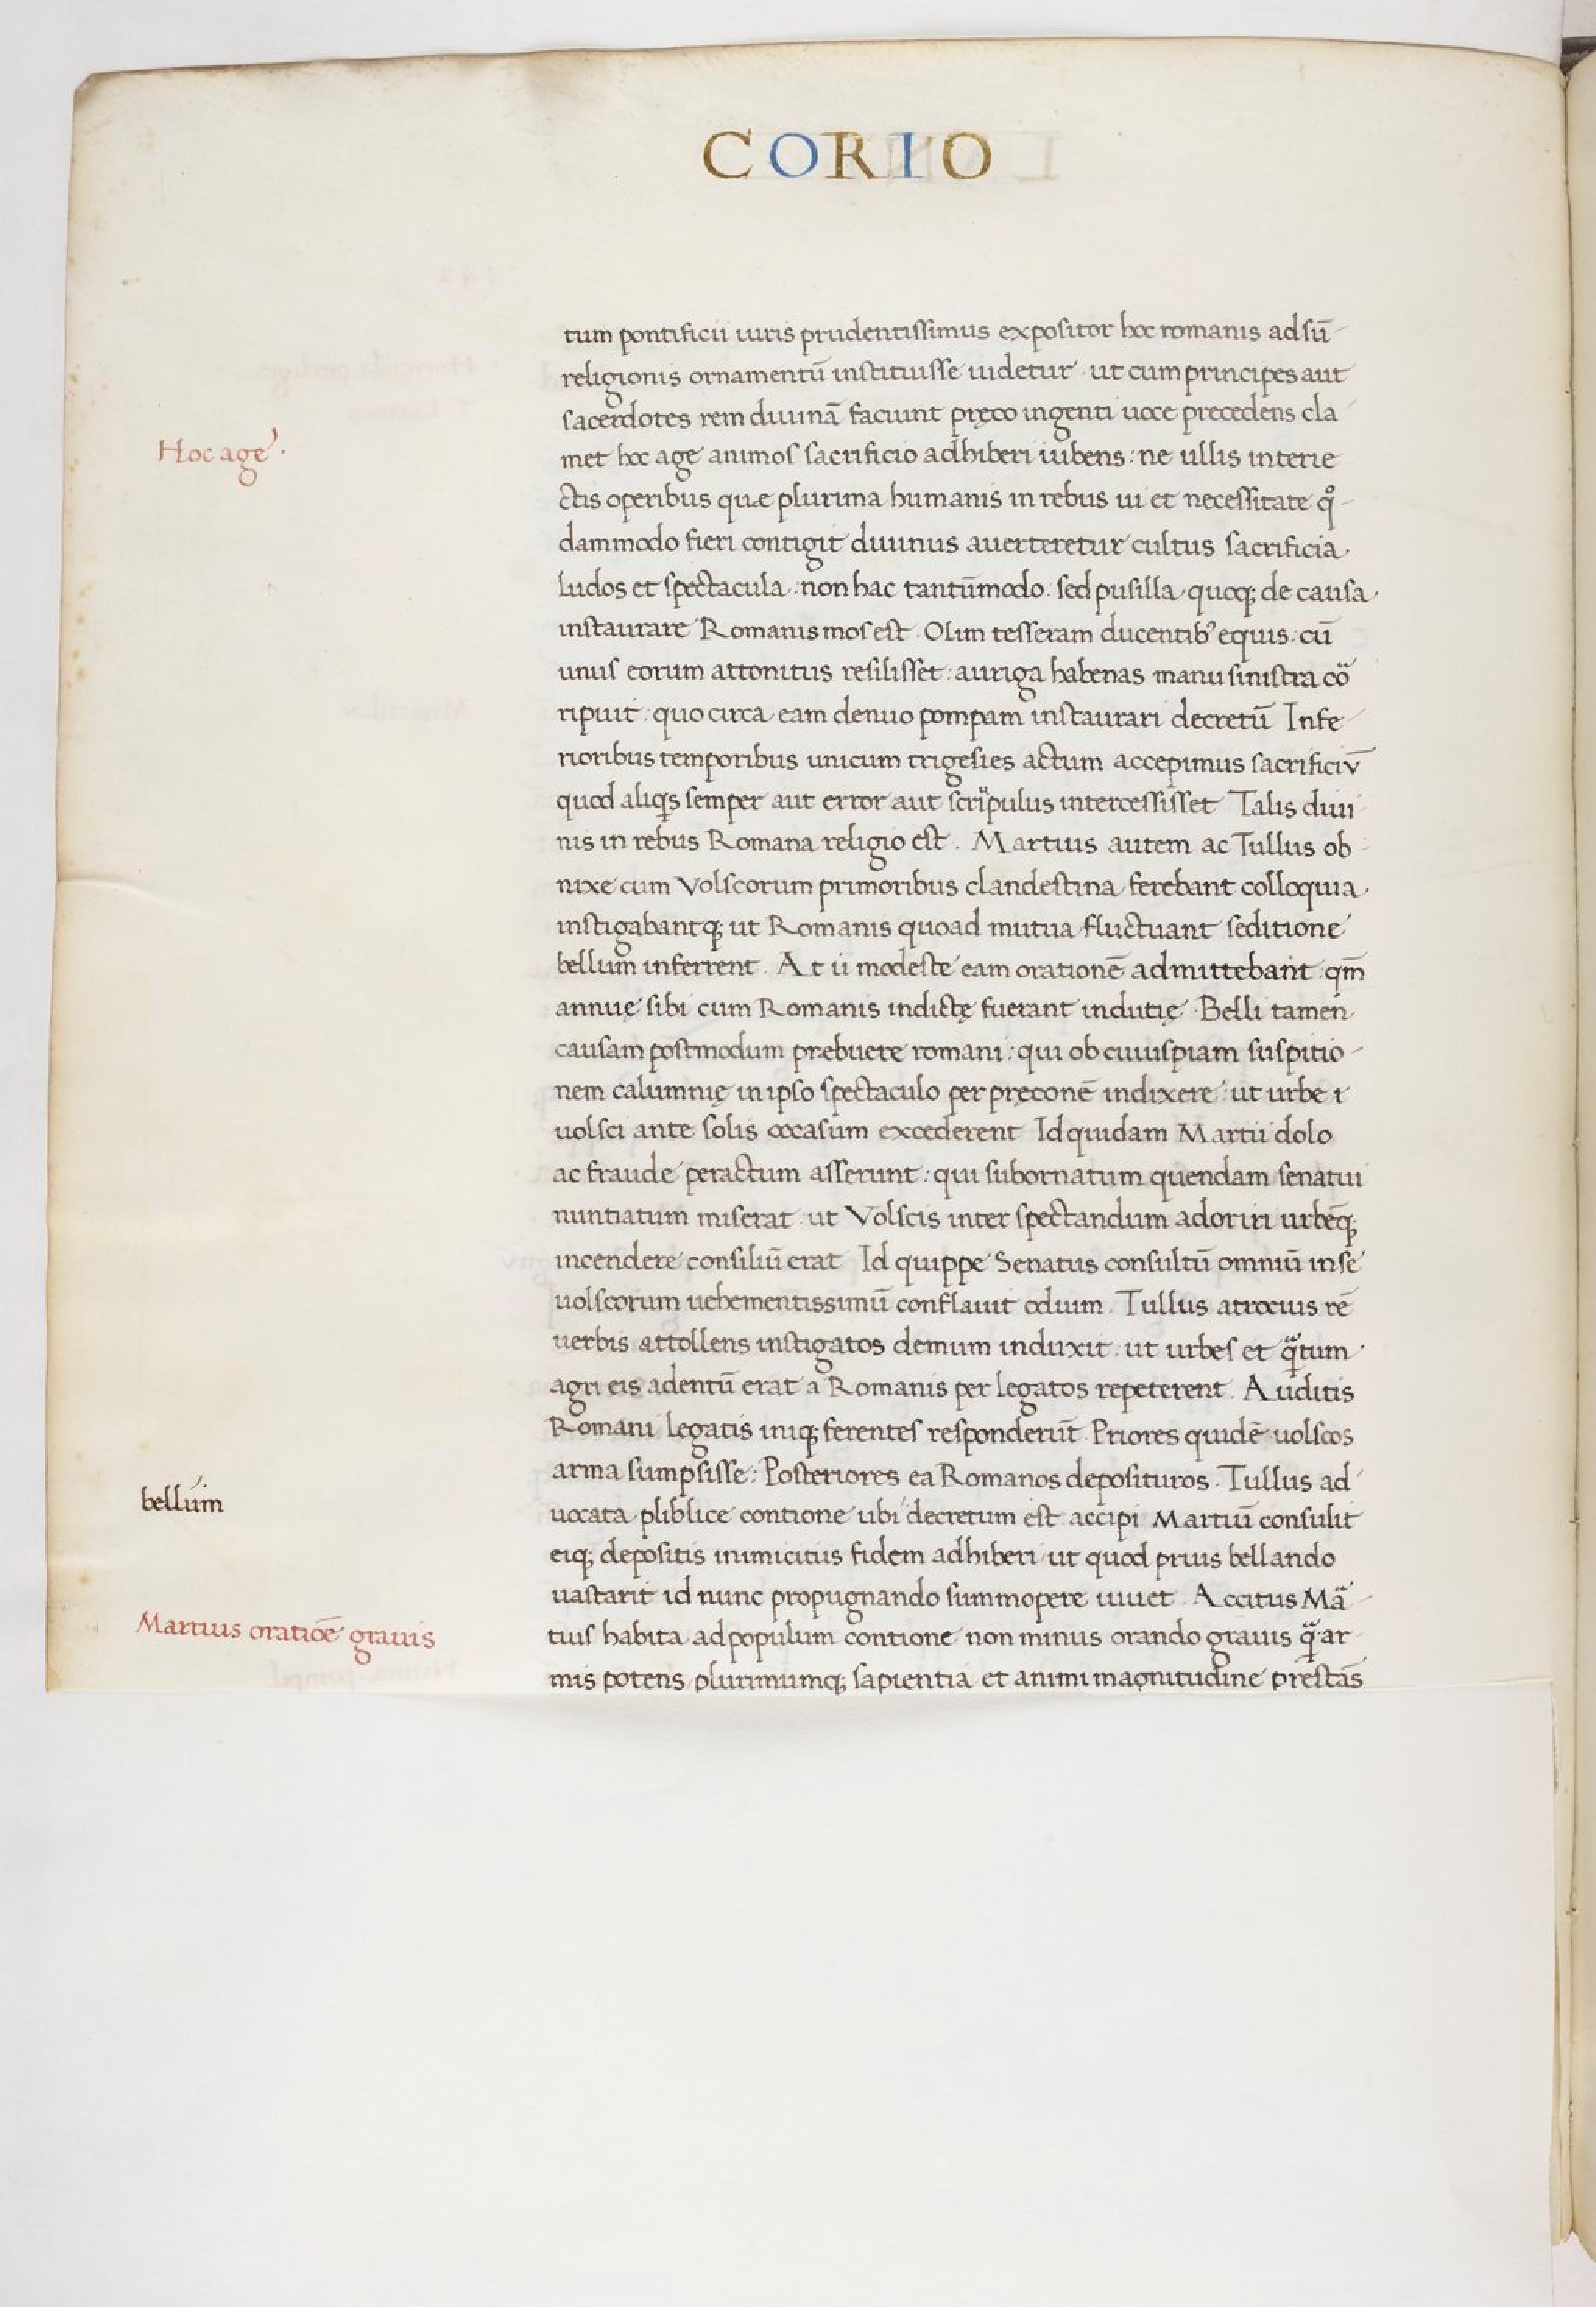 CORIO
tum pontificii iuris prudentissimus expositor hoc romanis ad sū
religionis ornamentū instituisse uidetur ut cum principes aut
sacerdotes rem diuinā faciunt pręco ingenti uoce precedens cla
Hoc age.
met hoc age animos sacrificio adhiberi iubens: ne ullis interie
ctis operibus quæ plurima humanis in rebus ui et necessitate qͦ
dammodo fieri contigit diuinus auerteretur cultus sacrificia.
Ludos et spectacula: non hac tantūmodo: sed pusilla quoq; de causa.
instaurare Romanis mos est. Olim tesseram ducentibꝰ equis: cū
unus eorum attonitus resilisset: auriga habenas manu sinistra coͣ
ripuit: quo circa eam denuo pompam instaurari decretū Infe
rioribus temporibus unicum trigesies actum accepimus sacrificiū
quod aliqͥs semper aut error aut scrupulus intercessisset Talis diui
nis in rebus Romana religio est. Martius autem ac Tullus ob
nixe cum Volscorum primoribus clandestina ferebant colloquia.
instigabantq; ut Romanis quoad mutua fluctuant seditione
bellum inferrent. At ii modeste eam orationē admittebant: qm̄
annuę sibi cum Romanis indictę fuerant indutię. Belli tamen
causam postmodum præbuere romani: qui ob cuiuspiam suspitio
nem calumnię in ipso spectaculo per pręconē indixere: ut urbe i
uolsci ante solis occasum excederent Id quidam Martii dolo
ac fraude peractum asserunt: qui subornatum quendam senatui
nuntiatum miserat ut Volscis inter spectandum adoriri urbēq;
incendere consiliū erat Id quippe Senatus consultū omniū in se
uolscorum uehementissimū conflauit odium. Tullus atrocius rē
uerbis attollens instigatos demum induxit: ut urbes et qͣtum
agri eis adentū erat a Romanis per legatos repeterent. Auditis
Romani legatis iniq; ferentes responderūt. Priores quidē uolscos
arma sumpsisse: Posteriores ea Romanos deposituros. Tullus ad
bellum
uocata pliblice contione ubi decretum est accipi Martiū consulit
eiq; depositis inimicitiis fidem adhiberi ut quod prius bellando
uastarit id nunc propugnando summopere iuuet. Accitus Maͣ
Martius oratiōe grauis
tius habita ad populum contione non minus orando grauis qͣ ar
mis potens plurimumq; sapientia et animi magnitudine prestās